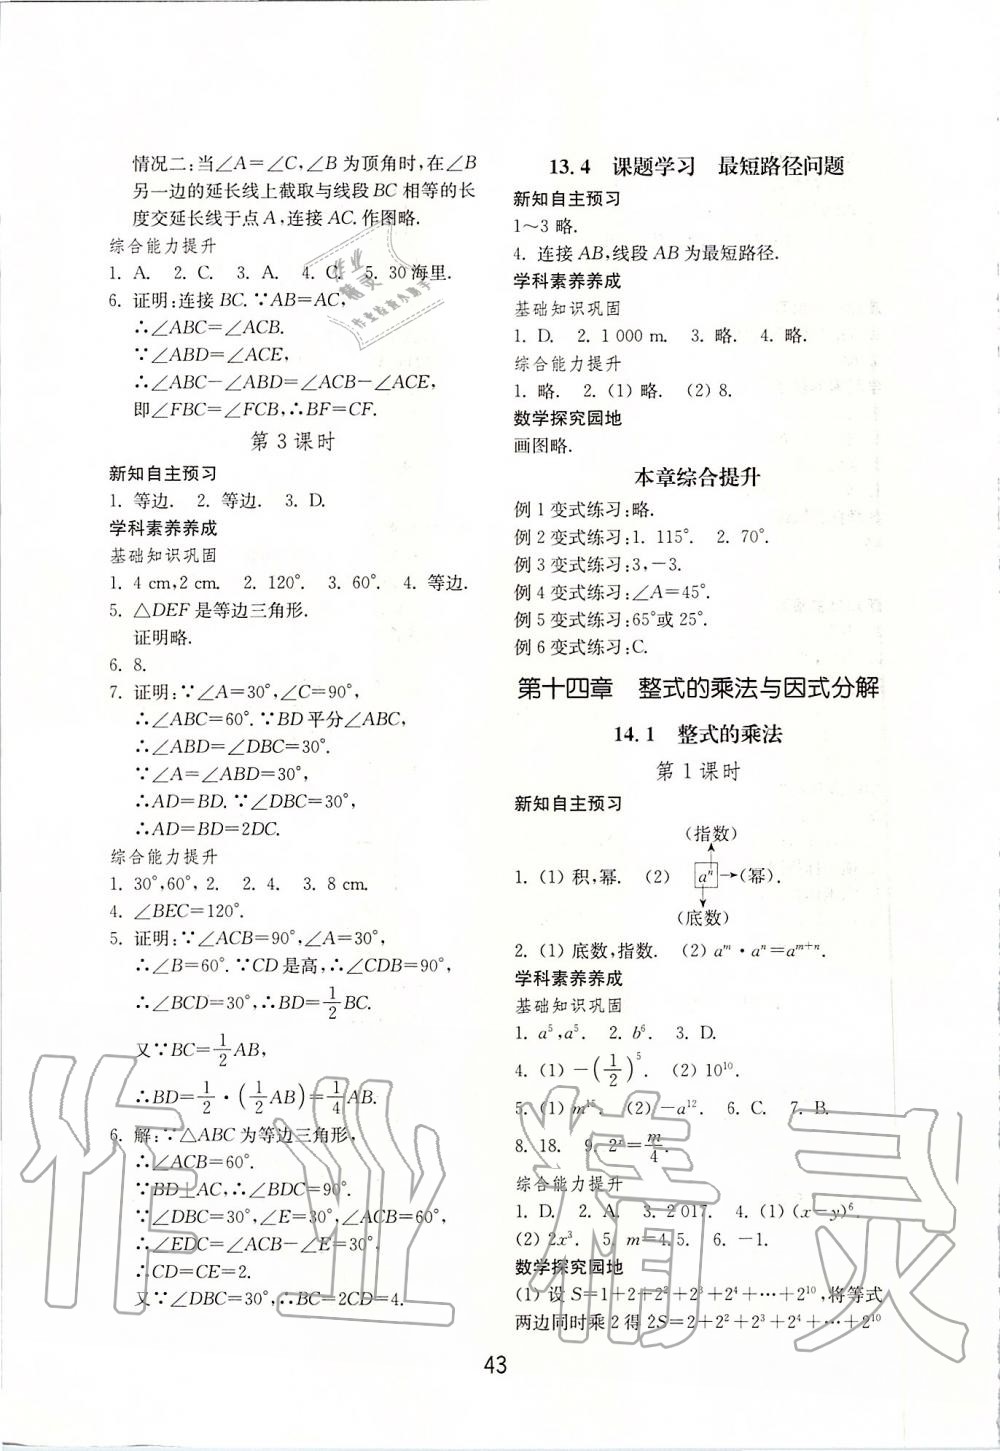 情况二:当∠A=∠C,∠B 为顶角时,在∠B
另一边的延长线上截取与线段 BC 相等的长
度交延长线于点 A,连接 AC. 作图略.
综合能力提升
1. A. 2. C. 3. A. 4. C. 5. 30 海里.
6. 证明:连接 BC. ∵AB=AC,
∴∠ABC=∠ACB.
∵∠ABD=∠ACE,
∴∠ABC-∠ABD=∠ACB-∠ACE,
即∠FBC=∠FCB,∴BF=CF.
第 3 课时
新知自主预习
1. 等边. 2. 等边. 3. D.
学科素养养成
基础知识巩固
1. 4 cm,2 cm. 2. 120°. 3. 60°. 4. 等边.
5. △DEF 是等边三角形.
证明略.
6. 8.
7. 证明:∵∠A=30°,∠C=90°,
∴∠ABC=60°. ∵BD 平分∠ABC,
∴∠ABD=∠DBC=30°.
∵∠A=∠ABD=30°,
∴AD=BD. ∵∠DBC=30°,
∴AD=BD=2DC.
综合能力提升
1. 30°,60°,2. 2. 4. 3. 8 cm.
4. ∠BEC=120°.
5. 证明:∵∠ACB=90°,∠A=30°,
∴∠B=60°. ∵CD 是高,∴∠CDB=90°,
∴∠BCD=30°,∴BD=1/2 BC.
又∵BC=1/2 AB,
∴BD=1/2·(1/2 AB)=1/4 AB.
6. 解:∵△ABC 为等边三角形,
∴∠ACB=60°.
∵BD⊥AC,∴∠BDC=90°.
∵∠DBC=30°,∠E=30°,∠ACB=60°,
∴∠EDC=∠ACB-∠E=30°,
∴CD=CE=2.
又∵∠DBC=30°,∴BC=2CD=4.
13.4 课题学习 最短路径问题
新知自主预习
1~3 略.
4. 连接 AB,线段 AB 为最短路径.
学科素养养成
基础知识巩固
1. D. 2. 1 000 m. 3. 略. 4. 略.
综合能力提升
1. 略. 2. (1) 略. (2) 8.
数学探究园地
画图略.
本章综合提升
例 1 变式练习:略.
例 2 变式练习:1. 115°. 2. 70°.
例 3 变式练习:3,-3.
例 4 变式练习:∠A=45°.
例 5 变式练习:65°或 25°.
例 6 变式练习:C.
第十四章 整式的乘法与因式分解
14.1 整式的乘法
第 1 课时
新知自主预习
(指数)
1. (1) 积,幂. (2) aⁿ→(幂).
(底数)
2. (1) 底数,指数. (2) aᵐ·aⁿ=aᵐ⁺ⁿ.
学科素养养成
基础知识巩固
1. a⁵,a⁵. 2. b⁶. 3. D.
4. (1) -(1/2)⁵. (2) 10¹⁰.
5. (1) m¹⁵. (2) -a¹². 6. C. 7. B.
8. 18. 9. 2ˣ=m/4.
综合能力提升
1. D. 2. A. 3. 2 017. 4. (1) (x-y)⁶.
(2) 2x³. 5. m=4.5. 6. -1.
数学探究园地
(1) 设 S=1+2+2²+2³+2⁴+…+2¹⁰,将等式
两边同时乘 2 得 2S=2+2²+2³+2⁴+…+2¹⁰
43
作业精灵